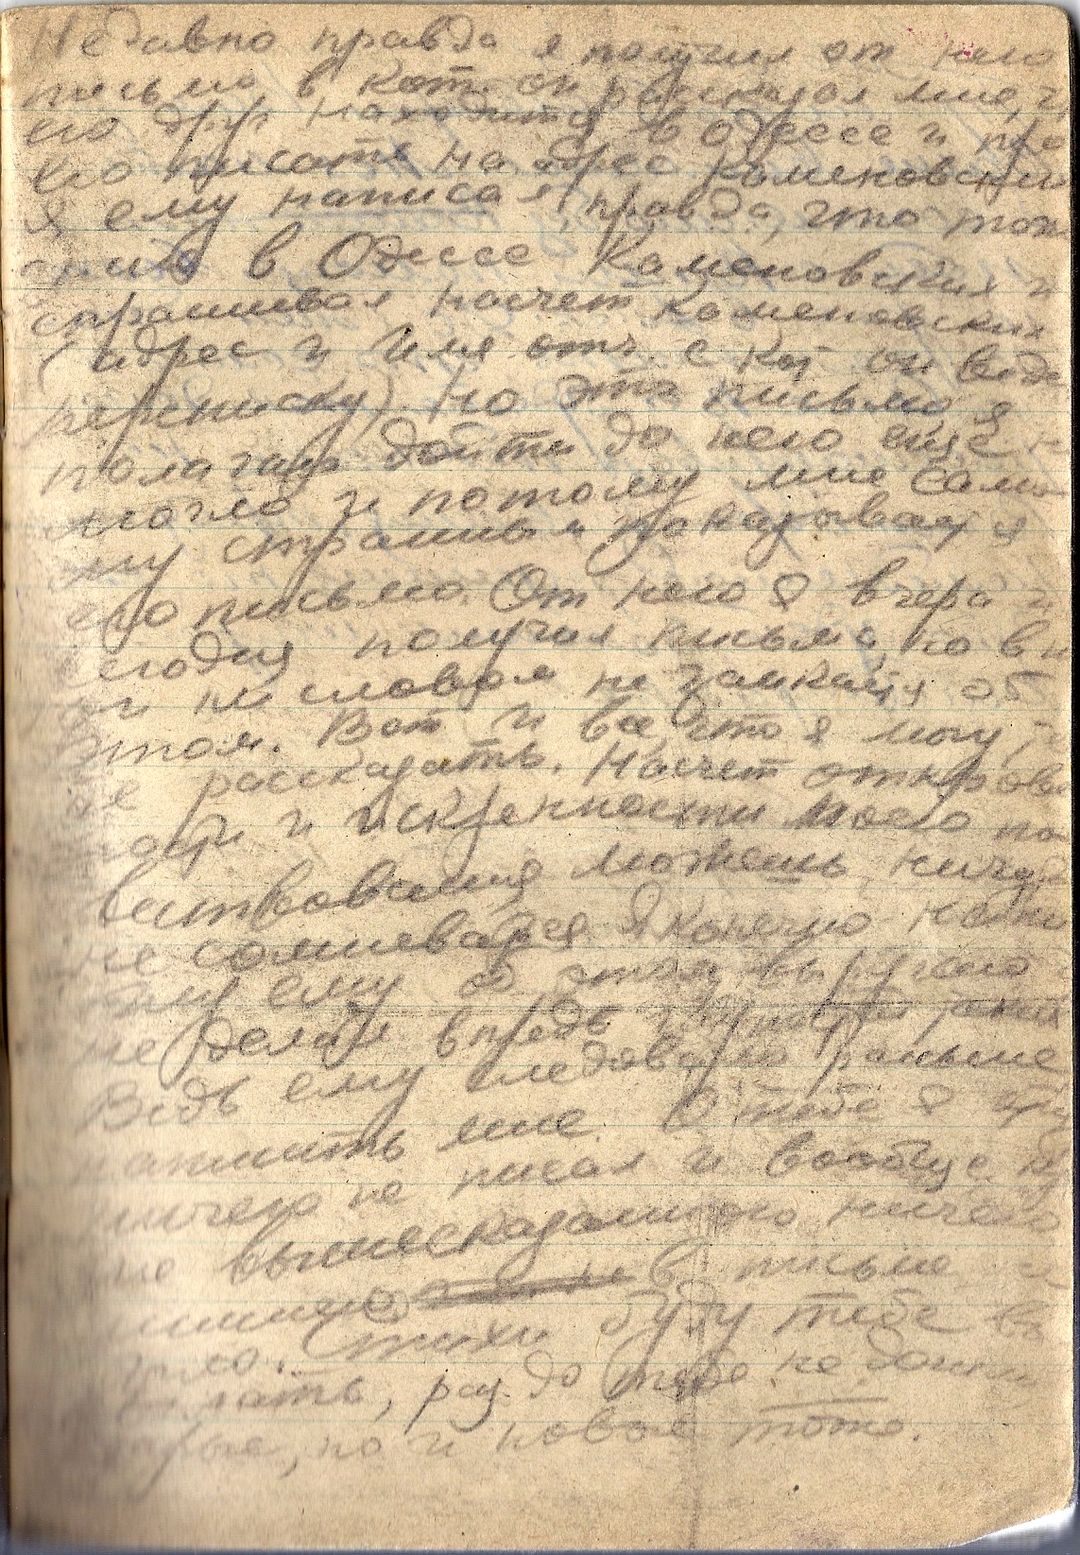 Недавно правда я получил от него
письмо, в кот. он рассказал мне, ч
его друг находится в Одессе и про
его писать на адрес Каменовских
Я ему написал, правда, что тож
в Одессе Каменовских и
спрашивал насчет Каменовских
(адрес и имя отч. с кот он веде
переписку) но это письмо, я
полагаю дойти до него еще н
могло и потому мне само
му странным показывается
его письмо. От него я вчера и
сегодня получил письма, но в н
и ни словом не заикается об
этом. Вот и все, что я могу, т
бе рассказать. Насчет откровен
ности и искренности моего по
вествования можешь ничуть
не сомневаться Я конечно
ему об этом выругаю
не делал впредь
Ведь ему следовало раньше
написать мне. О тебе я ему
ничего не писал и вообще, кр
оме вышесказанного ничего
в письме н
было. Стихи буду тебе вы
сылать, раз до тебя не дошли
старые, но и новые тоже.